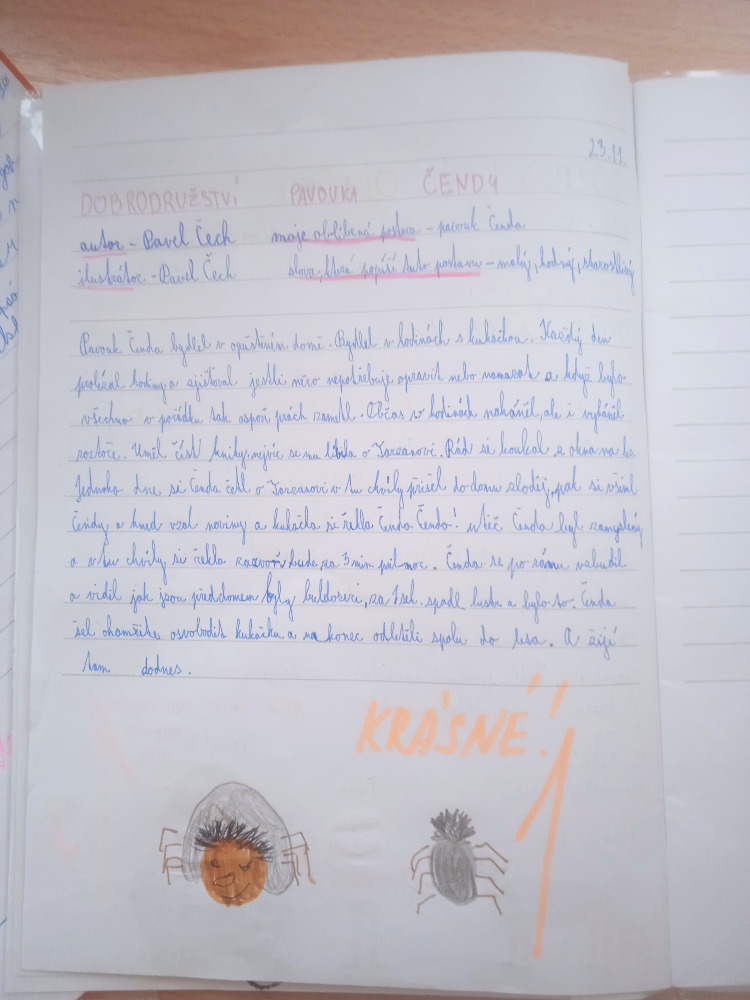 23.11.
DOBRODRUŽSTVÍ PAVOUKA ČENDY
autor - Pavel Čech moje oblíbená postava - pavouk Čenda
ilustrátor - Pavel Čech slova, která popíší tuto postavu - malý, hodný, starostlivý
Pavouk Čenda bydlel v opuštěném domě. Bydlel v hodinách s kukačkou. Každý den
prolézal hodiny a zjišťoval jestli něco nepotřebuje opravit nebo namazat a když bylo
všechno v pořádku tak aspoň prách zametl. Občas v hodinách naháněl, ale i vyháněl
roztoče. Uměl číst knihy, nejvíc se mu líbila o Tarzanovi. Rád se koukal z okna na
Jednoho dne si Čenda četl o Tarzanovi v tu chvíly přišel do domu zloděj, pak si všiml
Čendy a hned vzal noviny a kukačka si řekla Čenda Čendo! uteč Čenda byl zamyšlený
a v tu chvíly si řekla zazvoň bude za 3 min půlnoc. Čenda se po ránu vzbudil
a viděl jak jsou před domem byly buldozeri, za 1 sek. spadl lustr a bylo to. Čenda
šel okamžitě osvobodit kukačku a na konec odletěli spolu do lesa. A žijí
tam dodnes.
KRÁSNÉ!
1